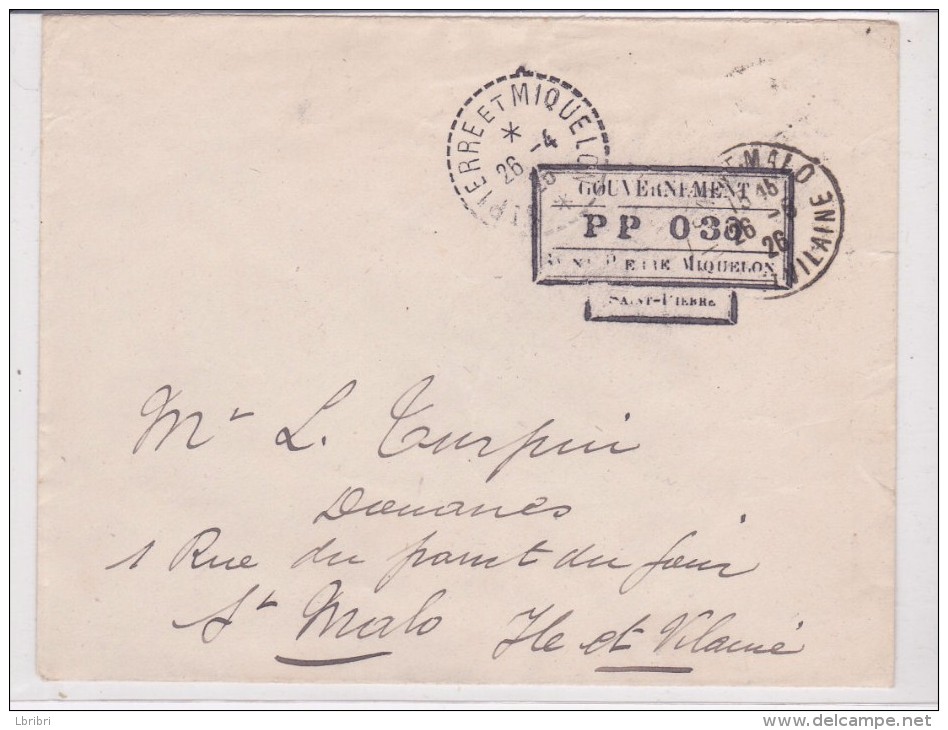 PIERRE ET MIQUELON
26 -4
GOUVERNEMENT
PP 030
MIQUELON
SAINT-PIERRE
MALO
VILAINE
26
26
Mr L. Turpin
Douanes
1 Rue du point du jour
St Malo Ile et Vilaine
Lbribri
www.delcampe.net